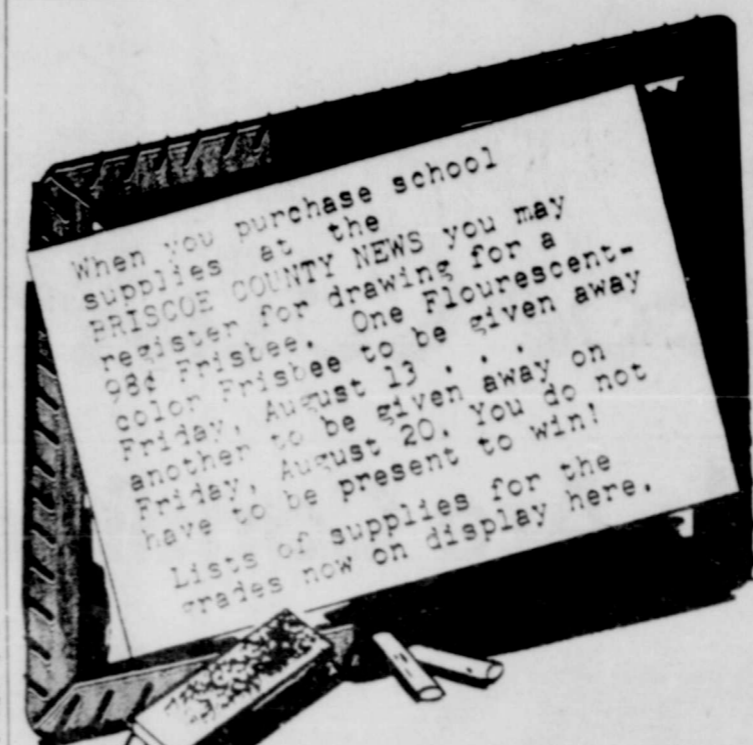 When you purchase school
supplies at the
BRISCOE COUNTY NEWS you may
register for drawing for a
98¢ Frisbee. One Flourescent-
color Frisbee to be given away
Friday, August 13 . . .
another to be given away on
Friday, August 20. You do not
have to be present to win!
Lists of supplies for the
grades now on display here.